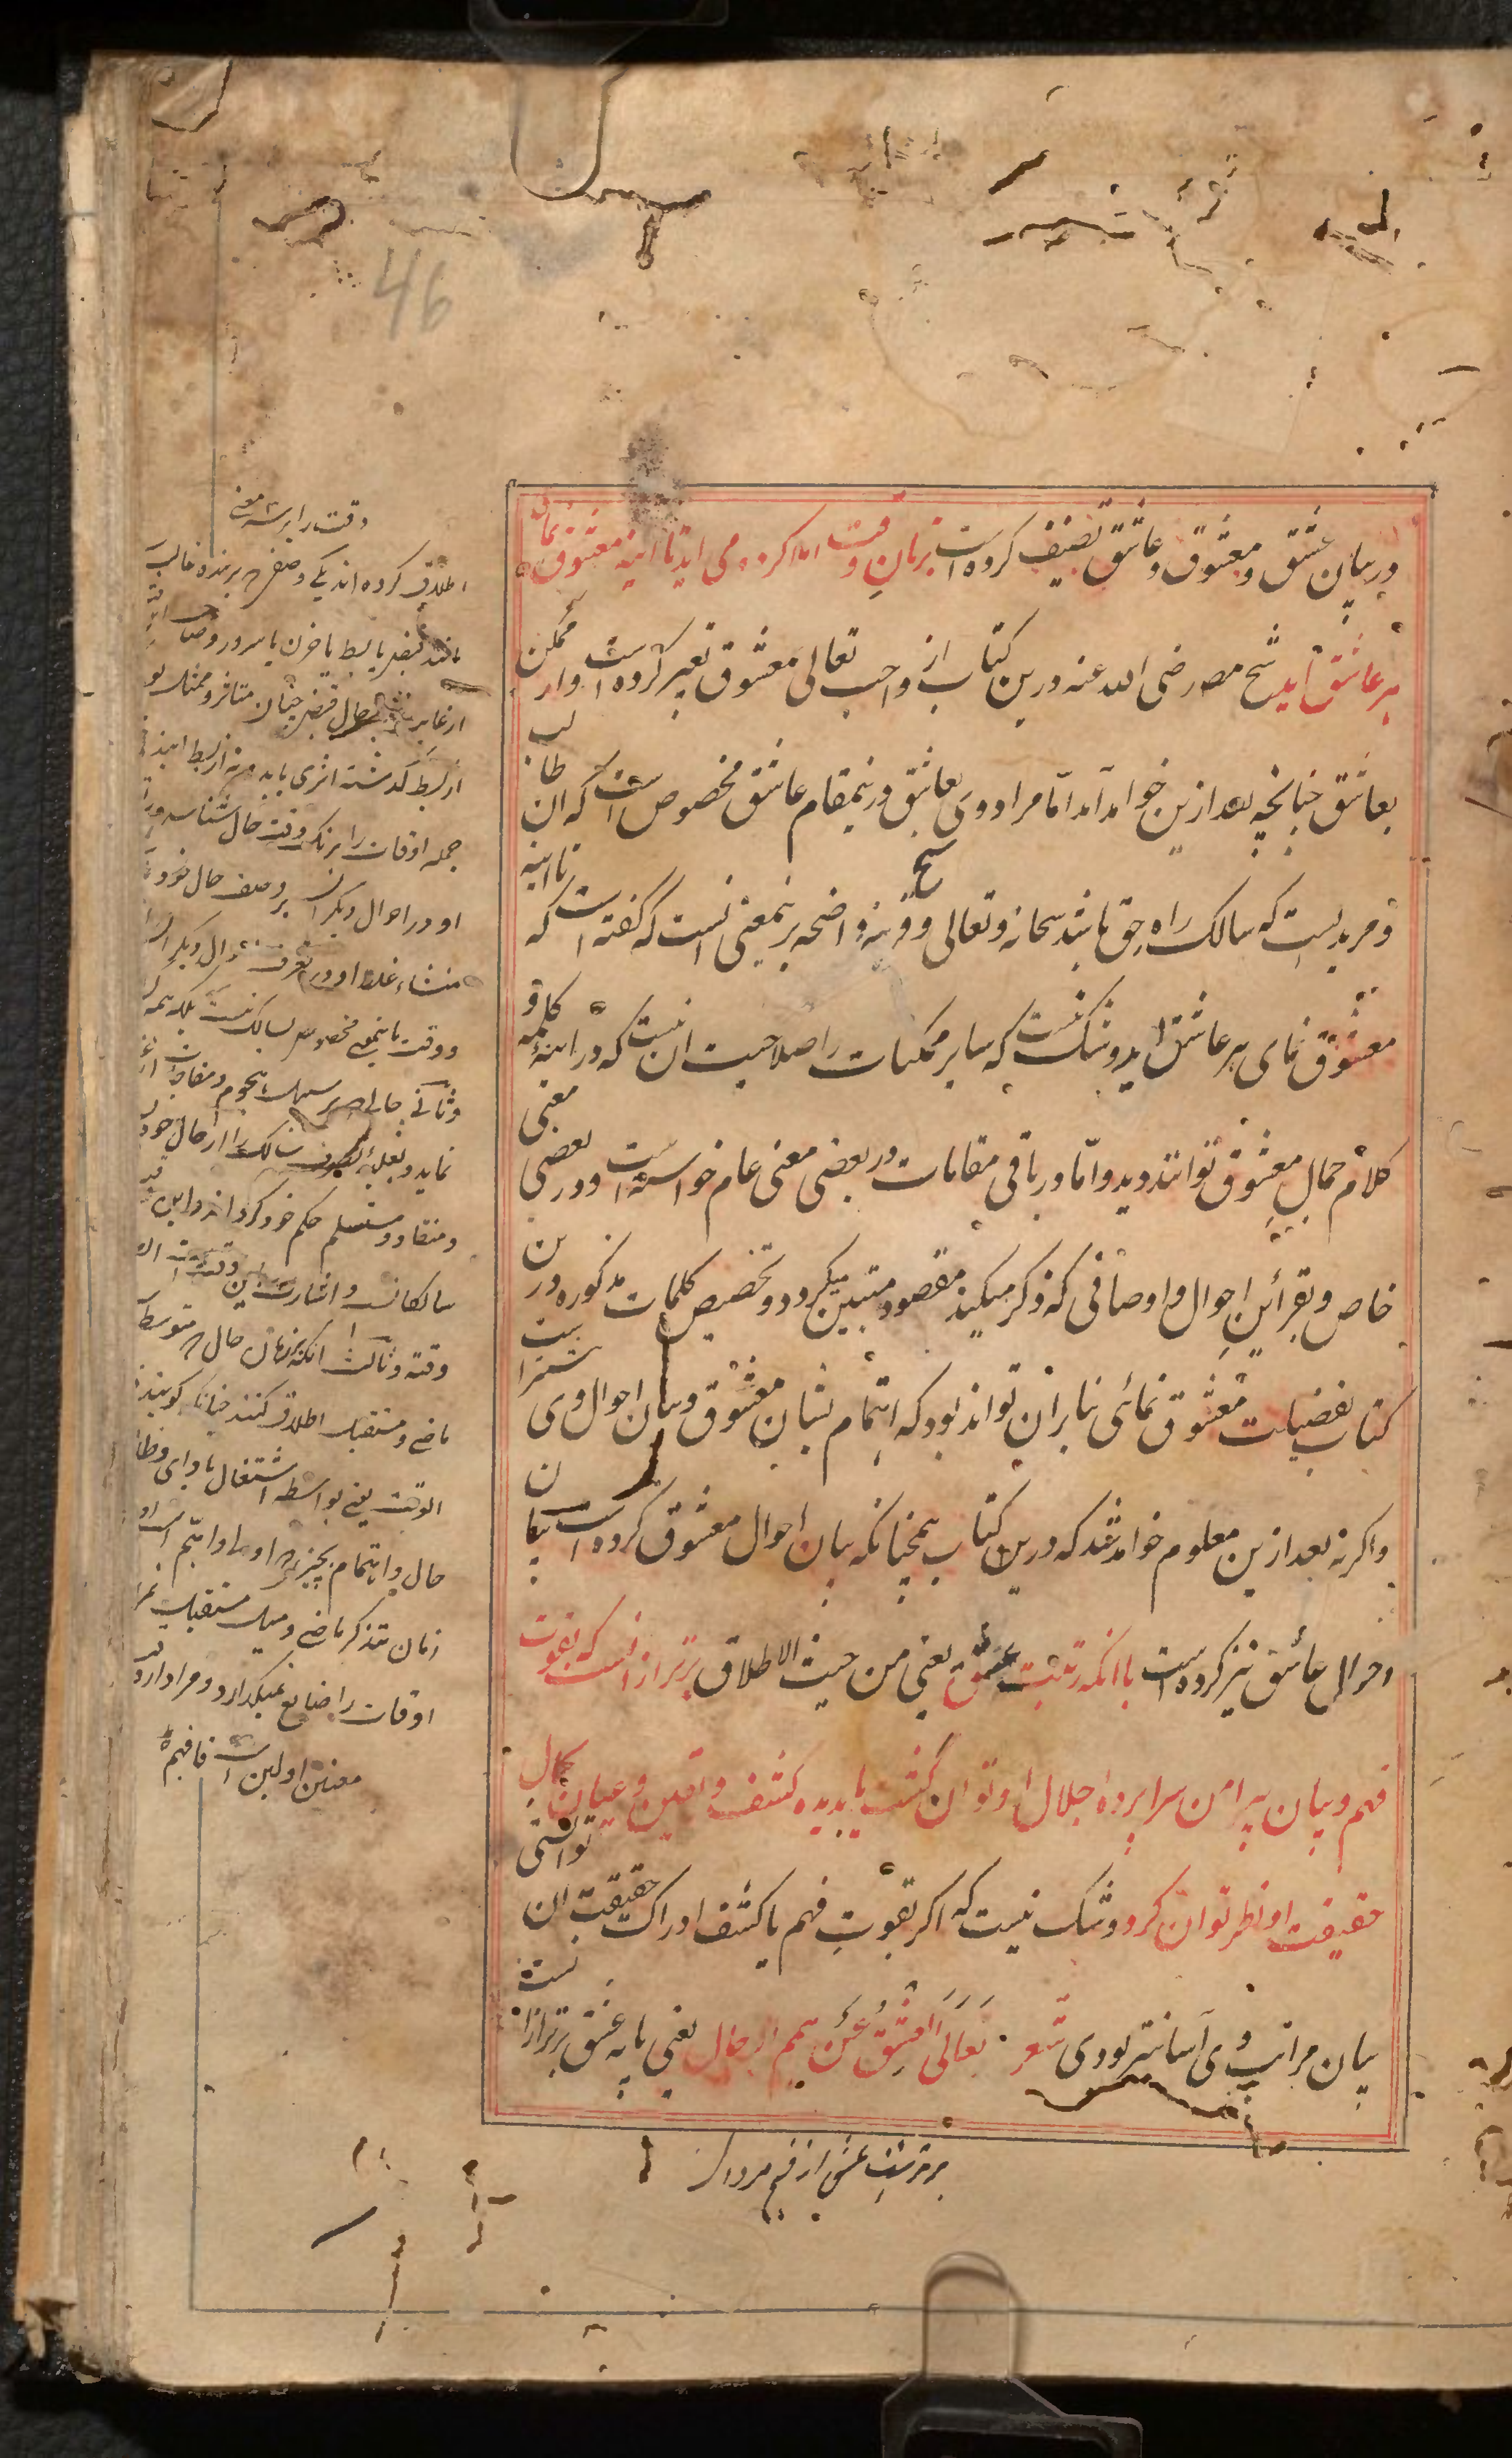 46
در بیان عشق و معشوق و عاشق تصنیف کرده است بزبان وقت املا کرده می اید تا اینه معشوق نمای
هر عاشق آید شیخ مصر رضی الله عنه درین کتاب از واجب تعالی بمعشوق تعبیر کرده است و از ممکن
بعاشق چنانچه بعد ازین خواهد آمد اما مراد وی بعاشق درینمقام عاشق مخصوص است که ان طالب
و مریدیست که سالک راه حق باشد سبحانه و تعالی و قرینه واضحه برینمعنی انست که گفته است که تا اینه
معشوق نمای هر عاشق اید و شک نیست که سایر ممکنات را صلاحیت ان نیست که در اینهٔ کلمه و
کلام جمال معشوق توانند دید و امّا در باقی مقامات در بعضی معنی عام خواسته است و در بعضی معنی
خاص و بقرائن احوال و اوصافی که ذکر میکند مقصود متبین میکردد و تخصیص کلمات مذکوره درین
کتاب بفضیلت معشوق نمائی بنا بران تواند بود که اهتمام بشان معشوق و بیان احوال وی بیشتر است
و اکرنه بعد ازین معلوم خواهد شد که درین کتاب همچنانکه بیان احوال معشوق کرده است بیان
احوال عاشق نیز کرده است با انکه رتبت عشق یعنی من حیث الاطلاق برتر از انست که بقوت
فهم و بیان پیرامن سراپرده جلال او توان کشت یا بدیده کشف و یقین و عیان بجمال
حقیقت او نظر توان کرد و شک نیست که اکر بقوت فهم یا کشف ادراک حقیقت ان توانستی
بیان مراتب وی آسانتر بودی شعر تعالی العشق عن همم الرجال یعنی پایه عشق برتر از انست
برترست عشق از فهم مردان
وقت را بر سه معنی
اطلاق کرده اند یکی وصفی که بر بنده غالب
مانند قبض یا بسط یا حزن یا سرور و صاحب
از غایت حال قبض چنان متاثر و ممتلی بود
از بسط کذشته اثری یابد و نه از بسط اینده
جمله اوقات را برنک وقت حال شناسد
او در احوال دیکران بر وصف حال خود
منشاء غلط او در تصرف احوال دیکران
و وقت باینمعنی مخصوص بسالک نیست بلکه همه
و ثانی حالی که بر سبیل هجوم و مفاجات از غیب
نماید و بغلبهٔ تصرف سالک را از حال خود
و منقاد و مستسلم حکم خود کرداند و این
سالکانست و اشارت باین وقت است
وقته و ثالث انکه زمان حال که متوسط
ماضی و مستقبل اطلاق کنند چنانکه کویند
الوقت یعنی بواسطه اشتغال بادای وظائف
حال و اهتمام بچیزی که اولی و اهم است
زمان تذکر ماضی و میل مستقبل
اوقات را ضایع نمیکذارد و مراد از
معنین اولین است فافهم